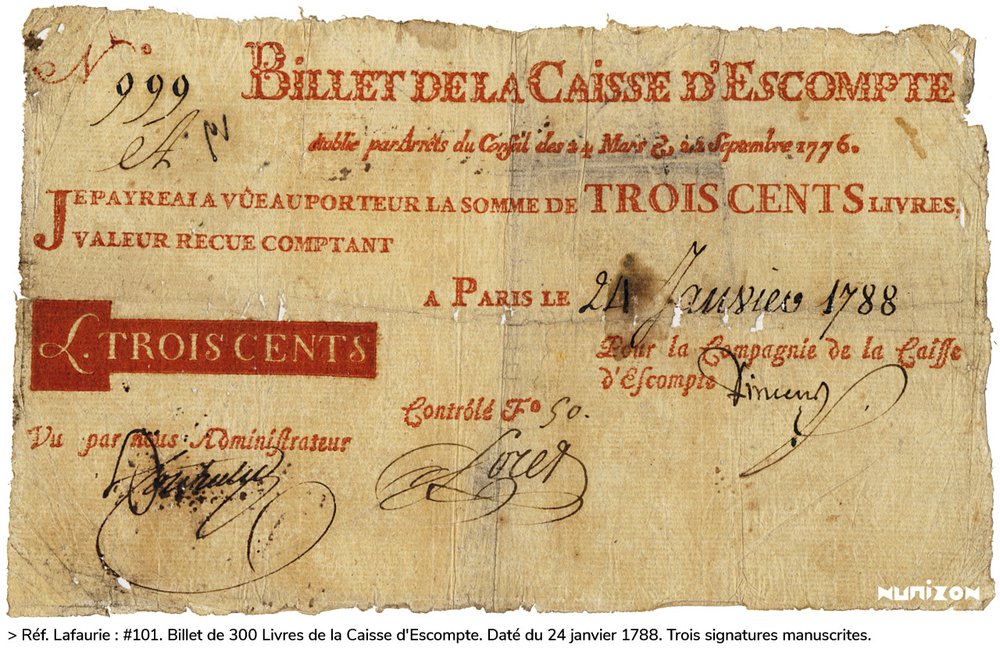 N° 999
BILLET DE LA CAISSE D'ESCOMPTE
établie par Arrêts du Conseil des 24 Mars & 22 Septembre 1776.
JE PAYREAI A VÛE AU PORTEUR LA SOMME DE TROIS CENTS LIVRES,
VALEUR RECUE COMPTANT
A PARIS LE 24 Janvier 1788
L. TROIS CENTS
Pour la Compagnie de la Caisse
d'Escompte
Contrôlé F° 50.
Vu par nous Administrateur
Loret
NUMIZON
> Réf. Lafaurie : #101. Billet de 300 Livres de la Caisse d'Escompte. Daté du 24 janvier 1788. Trois signatures manuscrites.